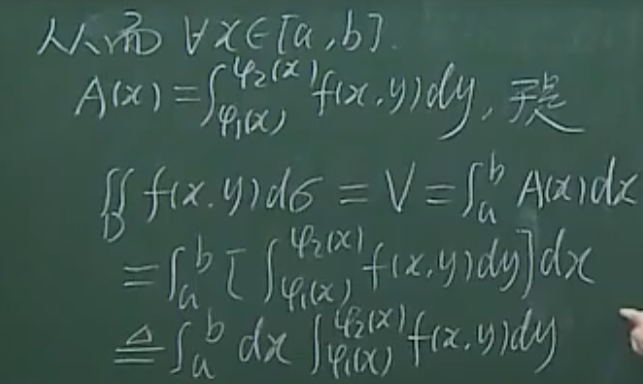 从而 ∀x∈[a,b].
A(x)=∫_{φ₁(x)}^{φ₂(x)} f(x,y)dy, 于是
∬_D f(x,y)dσ = V = ∫_a^b A(x)dx
=∫_a^b [∫_{φ₁(x)}^{φ₂(x)} f(x,y)dy]dx
≜∫_a^b dx ∫_{φ₁(x)}^{φ₂(x)} f(x,y)dy